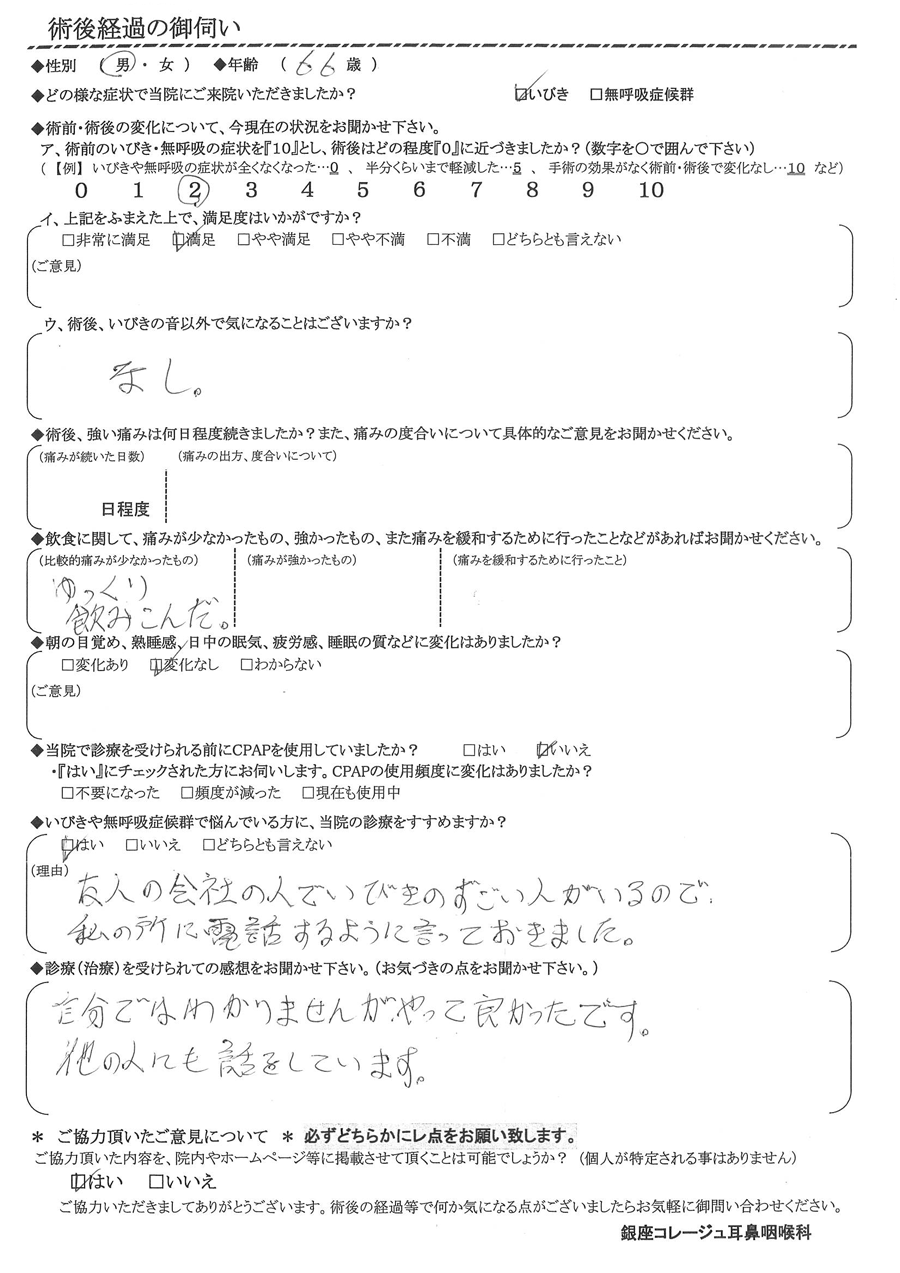 術後経過の御伺い
◆性別 ( 男 ・ 女 ) ◆年齢 ( 66 歳 )
◆どの様な症状で当院にご来院いただきましたか? ☑いびき □無呼吸症候群
◆術前・術後の変化について、今現在の状況をお聞かせ下さい。
ア、術前のいびき・無呼吸の症状を『10』とし、術後はどの程度『0』に近づきましたか?(数字を○で囲んで下さい)
(【例】いびきや無呼吸の症状が全くなくなった…0 、 半分くらいまで軽減した…5 、 手術の効果がなく術前・術後で変化なし…10 など)
0 1 2 3 4 5 6 7 8 9 10
イ、上記をふまえた上で、満足度はいかがですか?
□非常に満足 ☑満足 □やや満足 □やや不満 □不満 □どちらとも言えない
(ご意見)
ウ、術後、いびきの音以外で気になることはございますか?
なし。
◆術後、強い痛みは何日程度続きましたか?また、痛みの度合いについて具体的なご意見をお聞かせください。
(痛みが続いた日数) (痛みの出方、度合いについて)
日程度
◆飲食に関して、痛みが少なかったもの、強かったもの、また痛みを緩和するために行ったことなどがあればお聞かせください。
(比較的痛みが少なかったもの) (痛みが強かったもの) (痛みを緩和するために行ったこと)
ゆっくり
飲みこんだ。
◆朝の目覚め、熟睡感、日中の眠気、疲労感、睡眠の質などに変化はありましたか?
□変化あり ☑変化なし □わからない
(ご意見)
◆当院で診療を受けられる前にCPAPを使用していましたか? □はい ☑いいえ
・『はい』にチェックされた方にお伺いします。CPAPの使用頻度に変化はありましたか?
□不要になった □頻度が減った □現在も使用中
◆いびきや無呼吸症候群で悩んでいる方に、当院の診療をすすめますか?
☑はい □いいえ □どちらとも言えない
(理由)
友人の会社の人でいびきのすごい人がいるので
私の所に電話するように言っておきました。
◆診療(治療)を受けられての感想をお聞かせ下さい。(お気づきの点をお聞かせ下さい。)
自分ではわかりませんが、やって良かったです。
他の人にも話をしています。
＊ ご協力頂いたご意見について ＊ 必ずどちらかにレ点をお願い致します。
ご協力頂いた内容を、院内やホームページ等に掲載させて頂くことは可能でしょうか? (個人が特定される事はありません)
☑はい □いいえ
ご協力いただきましてありがとうございます。術後の経過等で何か気になる点がございましたらお気軽に御問い合わせください。
銀座コレージュ耳鼻咽喉科